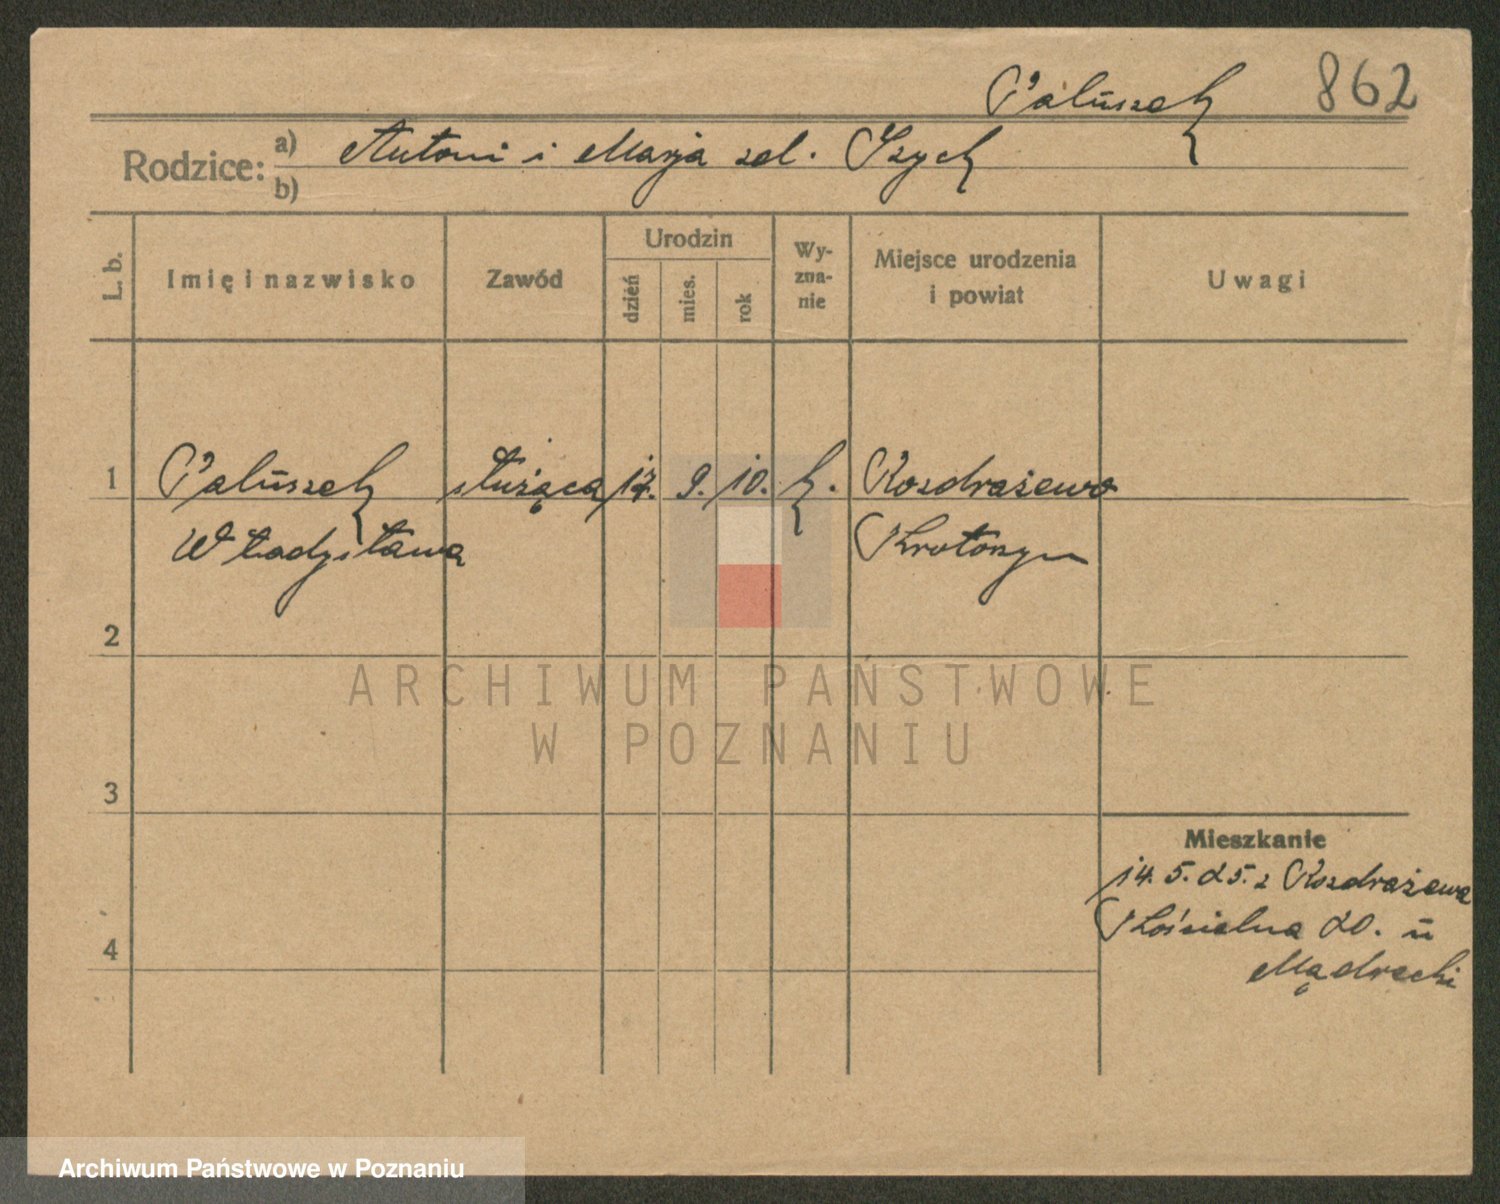 Paluszek 862
Rodzice: a) Antoni i Marja zd. Szych
b)
L. b. Imię i nazwisko Zawód Urodzin dzień mies. rok Wy-zna-nie Miejsce urodzenia i powiat Uwagi
1 Paluszek służąca 17. 9. 10. k. Rozdrażewo
Władysława Krotoszyn
2
ARCHIWUM PAŃSTWOWE
W POZNANIU
3
Mieszkanie
14. 5. 25. z Rozdrażewa
4 Kościelna 20. u
Mądrecki
Archiwum Państwowe w Poznaniu